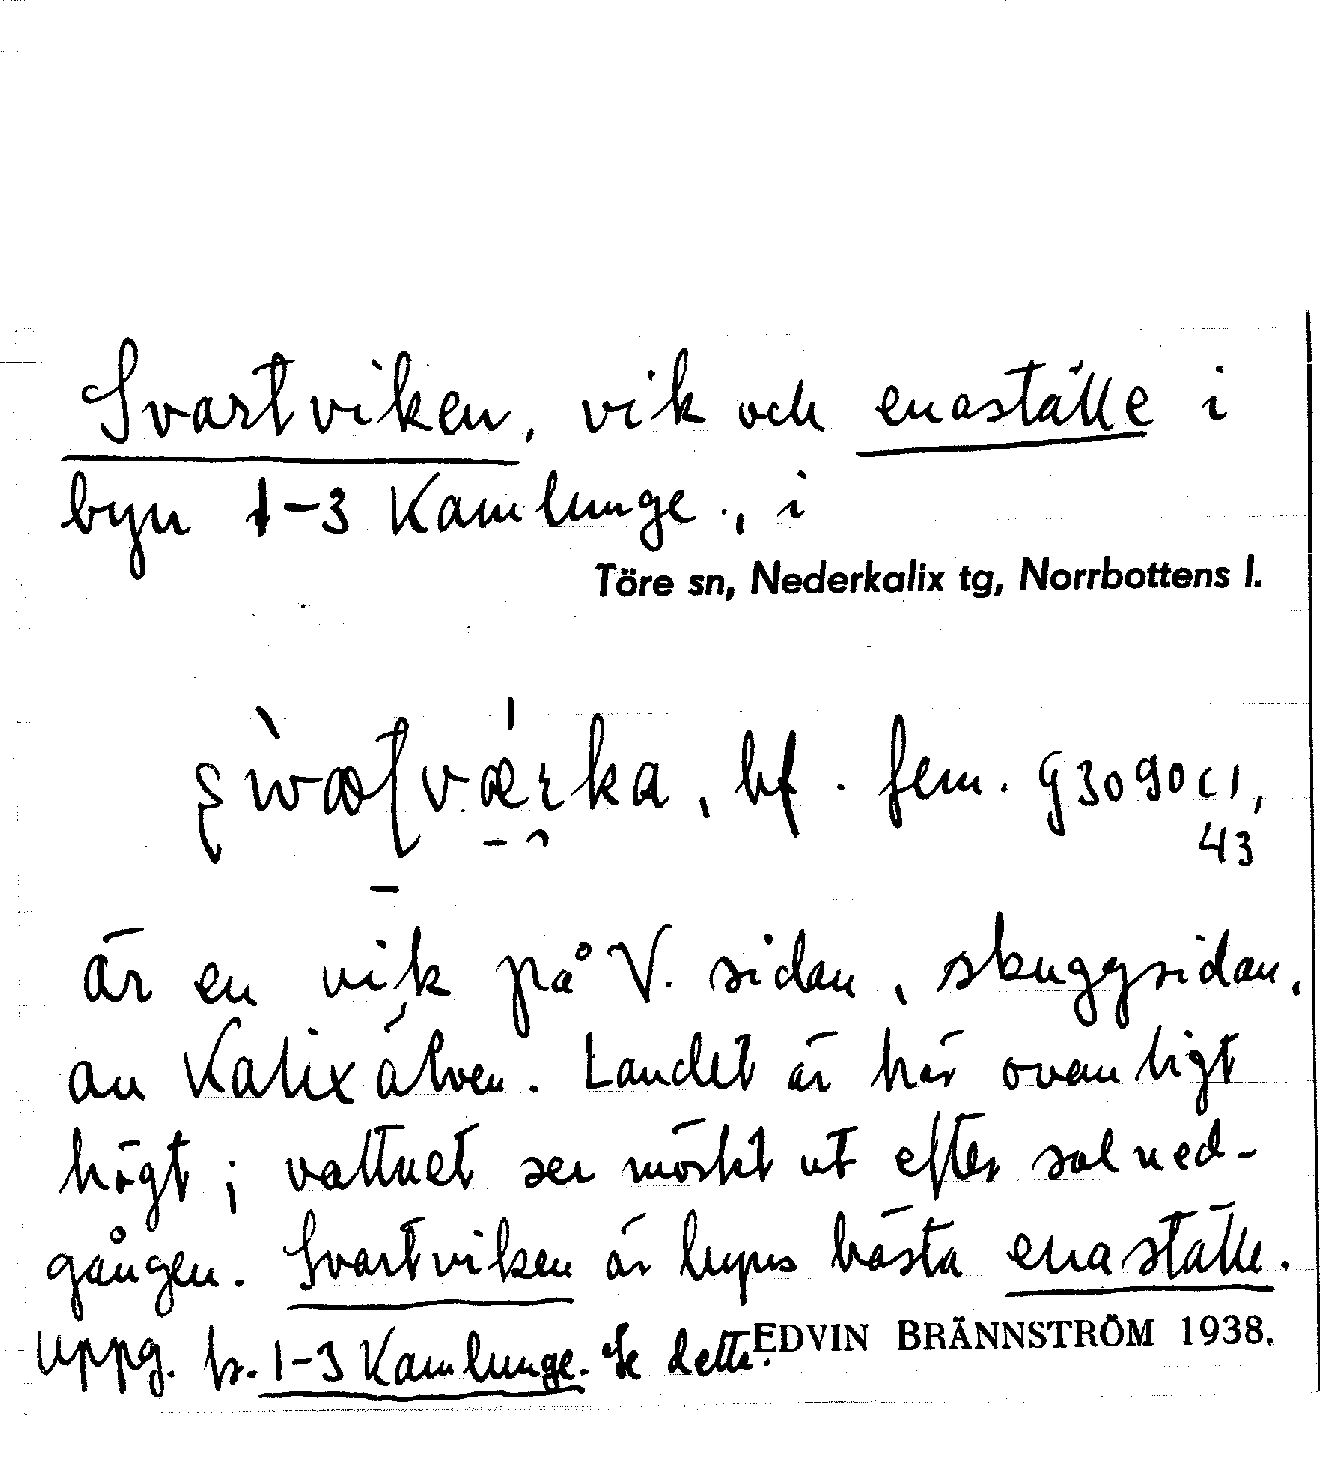 Svartviken, vik och enaställe i
byn 1-3 Kamlunge., i
Töre sn, Nederkalix tg, Norrbottens l.
bf. fem. G3090c1,
43
är en vik på V. sidan, skuggsidan,
av Kalixälven. Landet är här ovanligt
högt; vattnet ser mörkt ut efter solned-
gången. Svartviken är byns bästa enaställe.
Uppg. b. 1-3 Kamlunge. Se detta.
EDVIN BRÄNNSTRÖM 1938.